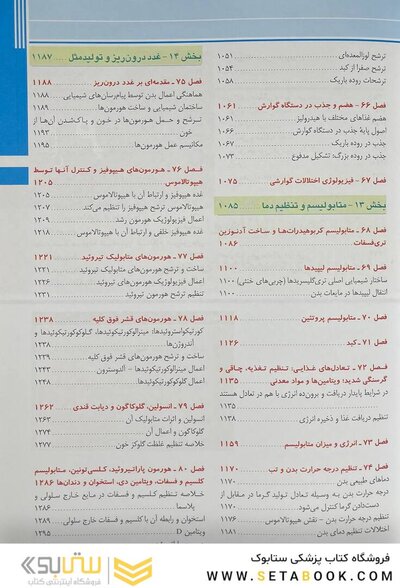 ترشح لوزالمعده‌ای ۱۰۵۱
ترشح صفرا از کبد ۱۰۵۴
ترشحات روده باریک ۱۰۵۸
فصل ۶۶ - هضم و جذب در دستگاه گوارش ۱۰۶۱
هضم غذاهای مختلف با هیدرولیز ۱۰۶۱
اصول پایهٔ جذب در دستگاه گوارش ۱۰۶۶
جذب در روده باریک ۱۰۶۷
جذب در روده بزرگ: تشکیل مدفوع ۱۰۷۳
فصل ۶۷ - فیزیولوژی اختلالات گوارشی ۱۰۷۵
بخش ۱۳ - متابولیسم و تنظیم دما ۱۰۸۵
فصل ۶۸ - متابولیسم کربوهیدرات‌ها و ساخت آدنوزین
تری‌فسفات ۱۰۸۶
فصل ۶۹ - متابولیسم لیپیدها ۱۱۰۰
ساختار شیمیایی اصلی تری‌گلیسریدها (چربی‌های خنثی) ۱۱۰۰
انتقال لیپیدها در مایعات بدن ۱۱۰۰
فصل ۷۰ - متابولیسم پروتئین ۱۱۱۸
فصل ۷۱ - کبد ۱۱۲۶
فصل ۷۲ - تعادل‌های غذایی: تنظیم تغذیه، چاقی و
گرسنگی شدید: ویتامین‌ها و مواد معدنی ۱۱۳۵
در شرایط پایدار دریافت و برون‌ده انرژی با هم در تعادل هستند
۱۱۳۵
تنظیم دریافت غذا و ذخیره انرژی ۱۱۳۸
فصل ۷۳ - انرژی و میزان متابولیسم ۱۱۵۹
فصل ۷۴ - تنظیم درجه حرارت بدن و تب ۱۱۷۰
دماهای طبیعی بدن ۱۱۷۰
درجه حرارت بدن به وسیله تعادل تولید گرما در مقابل از
دست‌دادن گرما کنترل می‌شود ۱۱۷۰
تنظیم درجه حرارت بدن - نقش هیپوتالاموس ۱۱۷۵
اختلالات تنظیم دمای بدن ۱۱۸۱
بخش ۱۴ - غدد درون‌ریز و تولیدمثل ۱۱۸۷
فصل ۷۵ - مقدمه‌ای بر غدد درون‌ریز ۱۱۸۸
هماهنگی اعمال بدن توسط پیام‌رسان‌های شیمیایی ۱۱۸۸
ساختمان شیمیایی و ساخت هورمون‌ها ۱۱۸۹
ترشح و حمل هورمون‌ها در خون و پاک‌شدن آن‌ها از
خون ۱۱۹۳
مکانیسم عمل هورمون‌ها ۱۱۹۵
فصل ۷۶ - هورمون‌های هیپوفیز و کنترل آنها توسط
هیپوتالاموس ۱۲۰۵
غده هیپوفیز و ارتباط آن با هیپوتالاموس ۱۲۰۵
هیپوتالاموس ترشح هیپوفیز را تنظیم می‌کند ۱۲۰۷
اعمال فیزیولوژیک هورمون رشد ۱۲۰۹
غده هیپوفیز خلفی و ارتباط آن با هیپوتالاموس ۱۲۱۸
فصل ۷۷ - هورمون‌های متابولیک تیروئید ۱۲۲۱
ساخت و ترشح هورمون‌های متابولیک تیروئید ۱۲۲۱
اعمال فیزیولوژیک هورمون‌های تیروئید ۱۲۲۶
تنظیم ترشح هورمون تیروئید ۱۲۳۱
فصل ۷۸ - هورمون‌های قشر فوق کلیه ۱۲۳۸
کورتیکواستروئیدها: مینرالوکورتیکوئیدها، گلوکوکورتیکوئیدها و
آندروژن‌ها ۱۲۳۸
ساخت و ترشح هورمون‌های قشر فوق کلیه ۱۲۳۹
اعمال مینرالوکورتیکوئیدها - آلدوسترون
اعمال گلوکوکورتیکوئیدها
فصل ۷۹ - انسولین، گلوکاگون و دیابت قندی ۱۲۶۲
انسولین و اثرات متابولیک آن ۱۲۶۳
گلوکاگون و اعمال آن ۱۲۷۴
خلاصه تنظیم غلظت گلوکز خون ۱۲۷۷
فصل ۸۰ - هورمون پاراتیروئید، کلسی‌تونین، متابولیسم
کلسیم و فسفات، ویتامین دی، استخوان و دندان‌ها ۱۲۸۶
خلاصه تنظیم کلسیم و فسفات در مایع خارج سلولی و
پلاسما ۱۲۸۶
استخوان و رابطه آن با کلسیم و فسفات خارج سلولی ۱۲۸۹
ویتامین D ۱۲۹۵
فروشگاه کتاب پزشکی ستابوک
WWW.SETABOOK.COM
ستابوک
فروشگاه اینترنتی کتاب